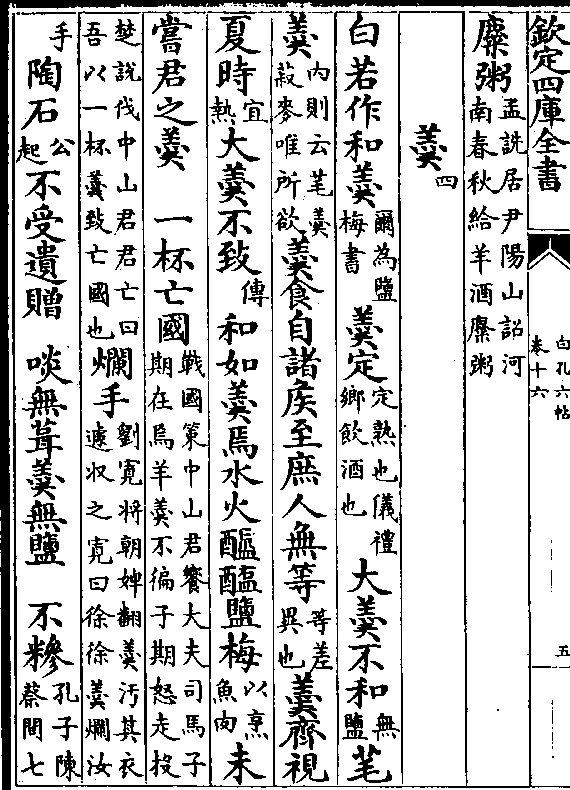 欽定四庫全書 白孔六帖 卷十六 五
糜粥孟詵居尹陽山詔河南春秋給羊酒糜粥
羹四
白若作和羹爾為鹽梅書 羹定定熟也儀禮鄉飲酒也 大羹不和無鹽芼
羹內則云芼羹菽麥唯所欲羹食自諸侯至庶人無等等差異也羹齊視
夏時宜熱大羹不致傳 和如羹焉水火醯醢鹽梅以烹魚肉未
嘗君之羹 一杯亡國戰國策中山君饗大夫司馬子期在焉羊羹不徧子期怒走投
楚說伐中山君君亡曰吾以一杯羹致亡國也爛手劉寬將朝婢翻羹污其衣遽收之寬曰徐徐羹爛汝
手陶石公起不受遺贈 啖無葺羹無鹽 不糝孔子陳蔡間七